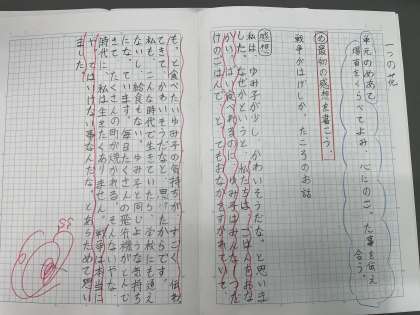 一つの花
単元のめあて
場面をくらべてよみ、心にのこった事を伝え
合う。
め最初の感想を書こう。
戦争がはげしかったころのお話
感想
私は、ゆみ子が少しかわいそうだな。と思いま
した。なぜかというと、私たちは、ごはんをおな
かいっぱい食べれるのに、ゆみ子はみんな一つだ
けのごはんで、とてもおなかをすかせていて
も、と食べたいゆみ子の気持ちが、すごく伝わ
てきて、かわいそうだなと、思ったからです。
私も、こんな時代で生きていたら、学校にも通え
ないし、給食もない。ゆみ子と同じような気持ち
になっています。毎日たくさんの飛行機がとんで
きて、たくさんの町が焼かれる。そんないやな
時代に、私は生きたくありません。戦争は本当に
やってはいけない事なんだな。とあらためて思い
ました。